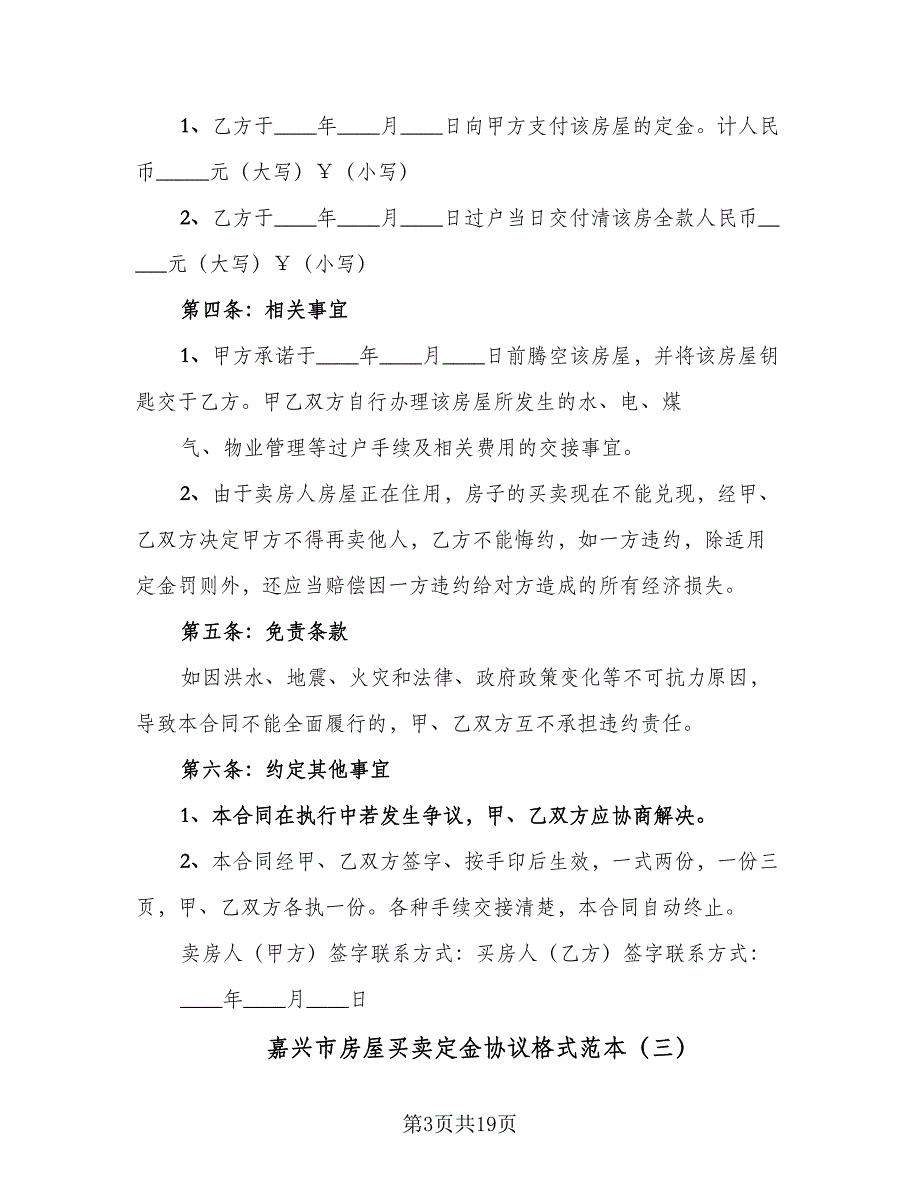 1、乙方于____年____月____日向甲方支付该房屋的定金。计人民
币_____元（大写）￥（小写）
2、乙方于____年____月____日过户当日交付清该房全款人民币__
___元（大写）￥（小写）
第四条：相关事宜
1、甲方承诺于____年____月____日前腾空该房屋，并将该房屋钥
匙交于乙方。甲乙双方自行办理该房屋所发生的水、电、煤
气、物业管理等过户手续及相关费用的交接事宜。
2、由于卖房人房屋正在住用，房子的买卖现在不能兑现，经甲、
乙双方决定甲方不得再卖他人，乙方不能悔约，如一方违约，除适用
定金罚则外，还应当赔偿因一方违约给对方造成的所有经济损失。
第五条：免责条款
如因洪水、地震、火灾和法律、政府政策变化等不可抗力原因，
导致本合同不能全面履行的，甲、乙双方互不承担违约责任。
第六条：约定其他事宜
1、本合同在执行中若发生争议，甲、乙双方应协商解决。
2、本合同经甲、乙双方签字、按手印后生效，一式两份，一份三
页，甲、乙双方各执一份。各种手续交接清楚，本合同自动终止。
卖房人（甲方）签字联系方式：买房人（乙方）签字联系方式：
____年____月____日
嘉兴市房屋买卖定金协议格式范本（三）
第3页共19页